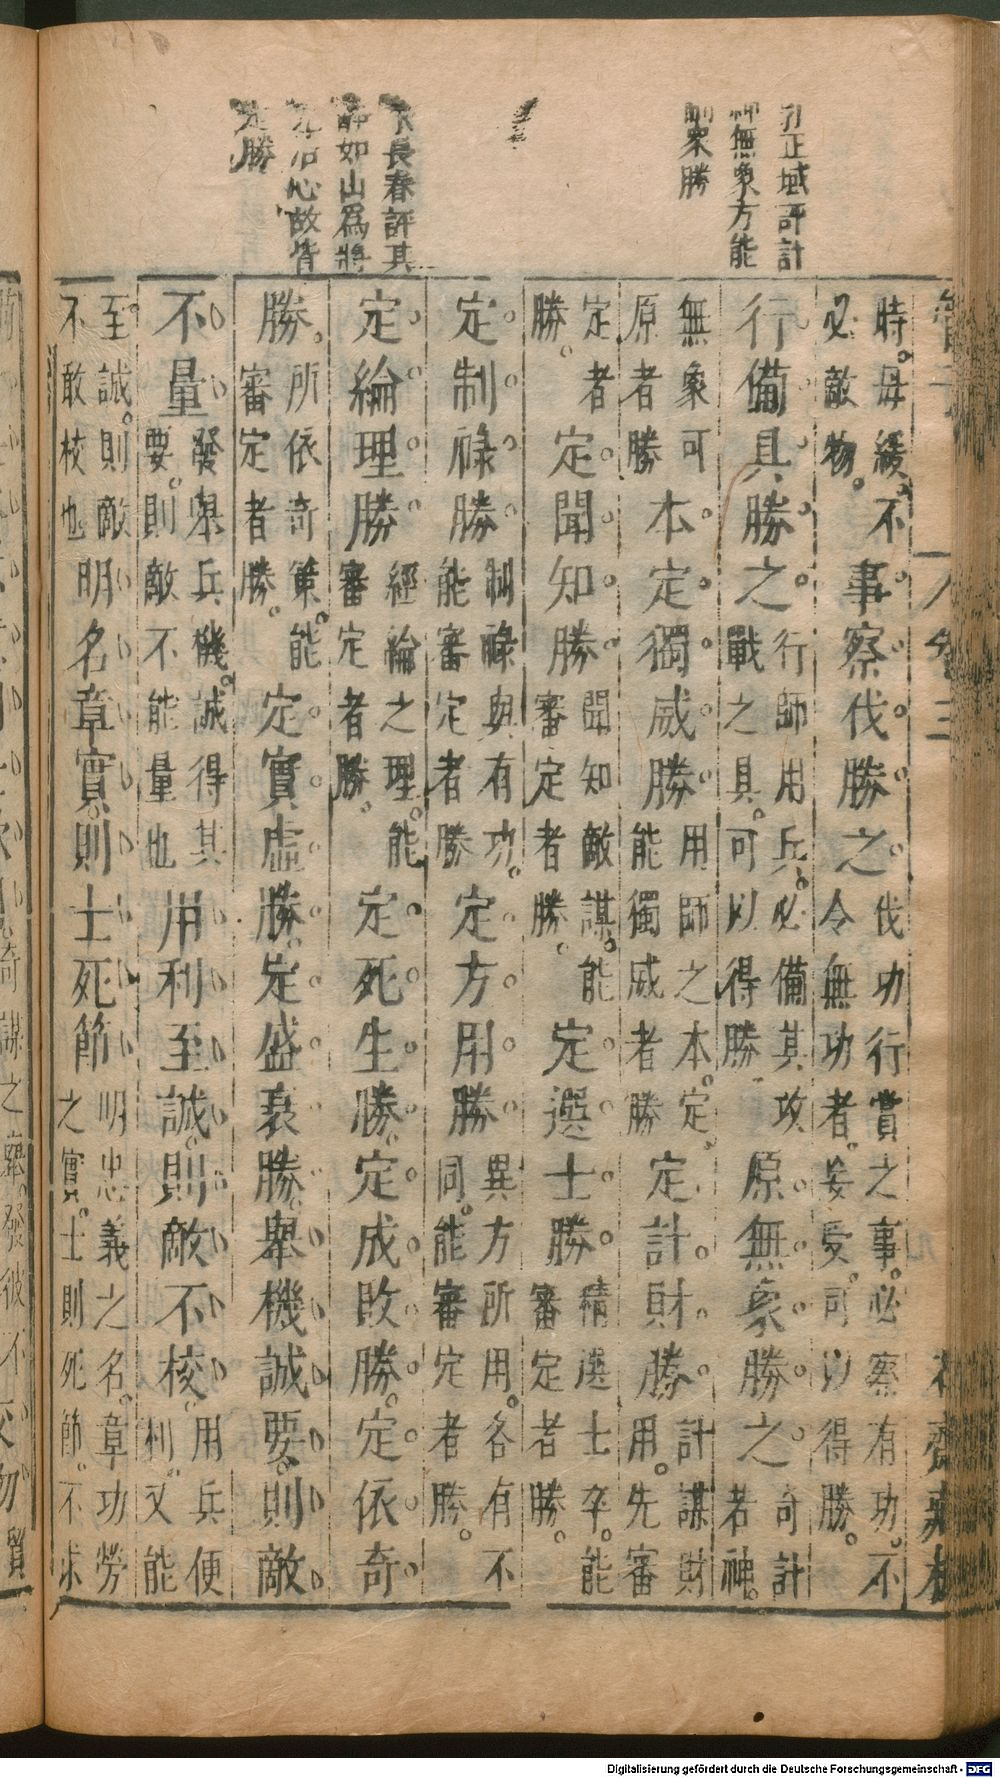 孔正域評計
神無象方能
制衆勝
長春評其
靜如山爲將
治心故皆
定勝
時。毋緩。不
必敵物。
事察伐勝之。
伐功行賞之事。必察有功。不
令無功者。妄受。可以得勝。
行備具勝之。
行師用兵。必備其攻
戰之具。可以得勝
原無象勝之。
奇計
若神。
無象可
原者勝
本定獨威勝。
用師之本。定
能獨威者勝
定計財勝。
計謀財
用。先審
定者
勝。
定聞知勝。
聞知敵謀。能
審定者勝。
定選士勝。
精選士卒。能
審定者勝。
定制祿勝。
制祿與有功。
能審定者勝
定方用勝。
異方所用。各有不
同。能審定者勝。
定綸理勝。
經綸之理。能
審定者勝。
定死生勝。定成敗勝。定依奇
勝。
所依奇策。能
審定者勝。
定實虛勝。定盛衰勝。舉機誠要。則敵
不量。
發舉兵機。誠得其
要。則敵不能量也
用利至誠。則敵不校。
用兵便
利。又能
至誠。則敵
不敢校也
明名章實。則士死節。
明忠義之名。章功勞
之實。士則死節。不求
卷三
Digitalisierung gefördert durch die Deutsche Forschungsgemeinschaft - DFG